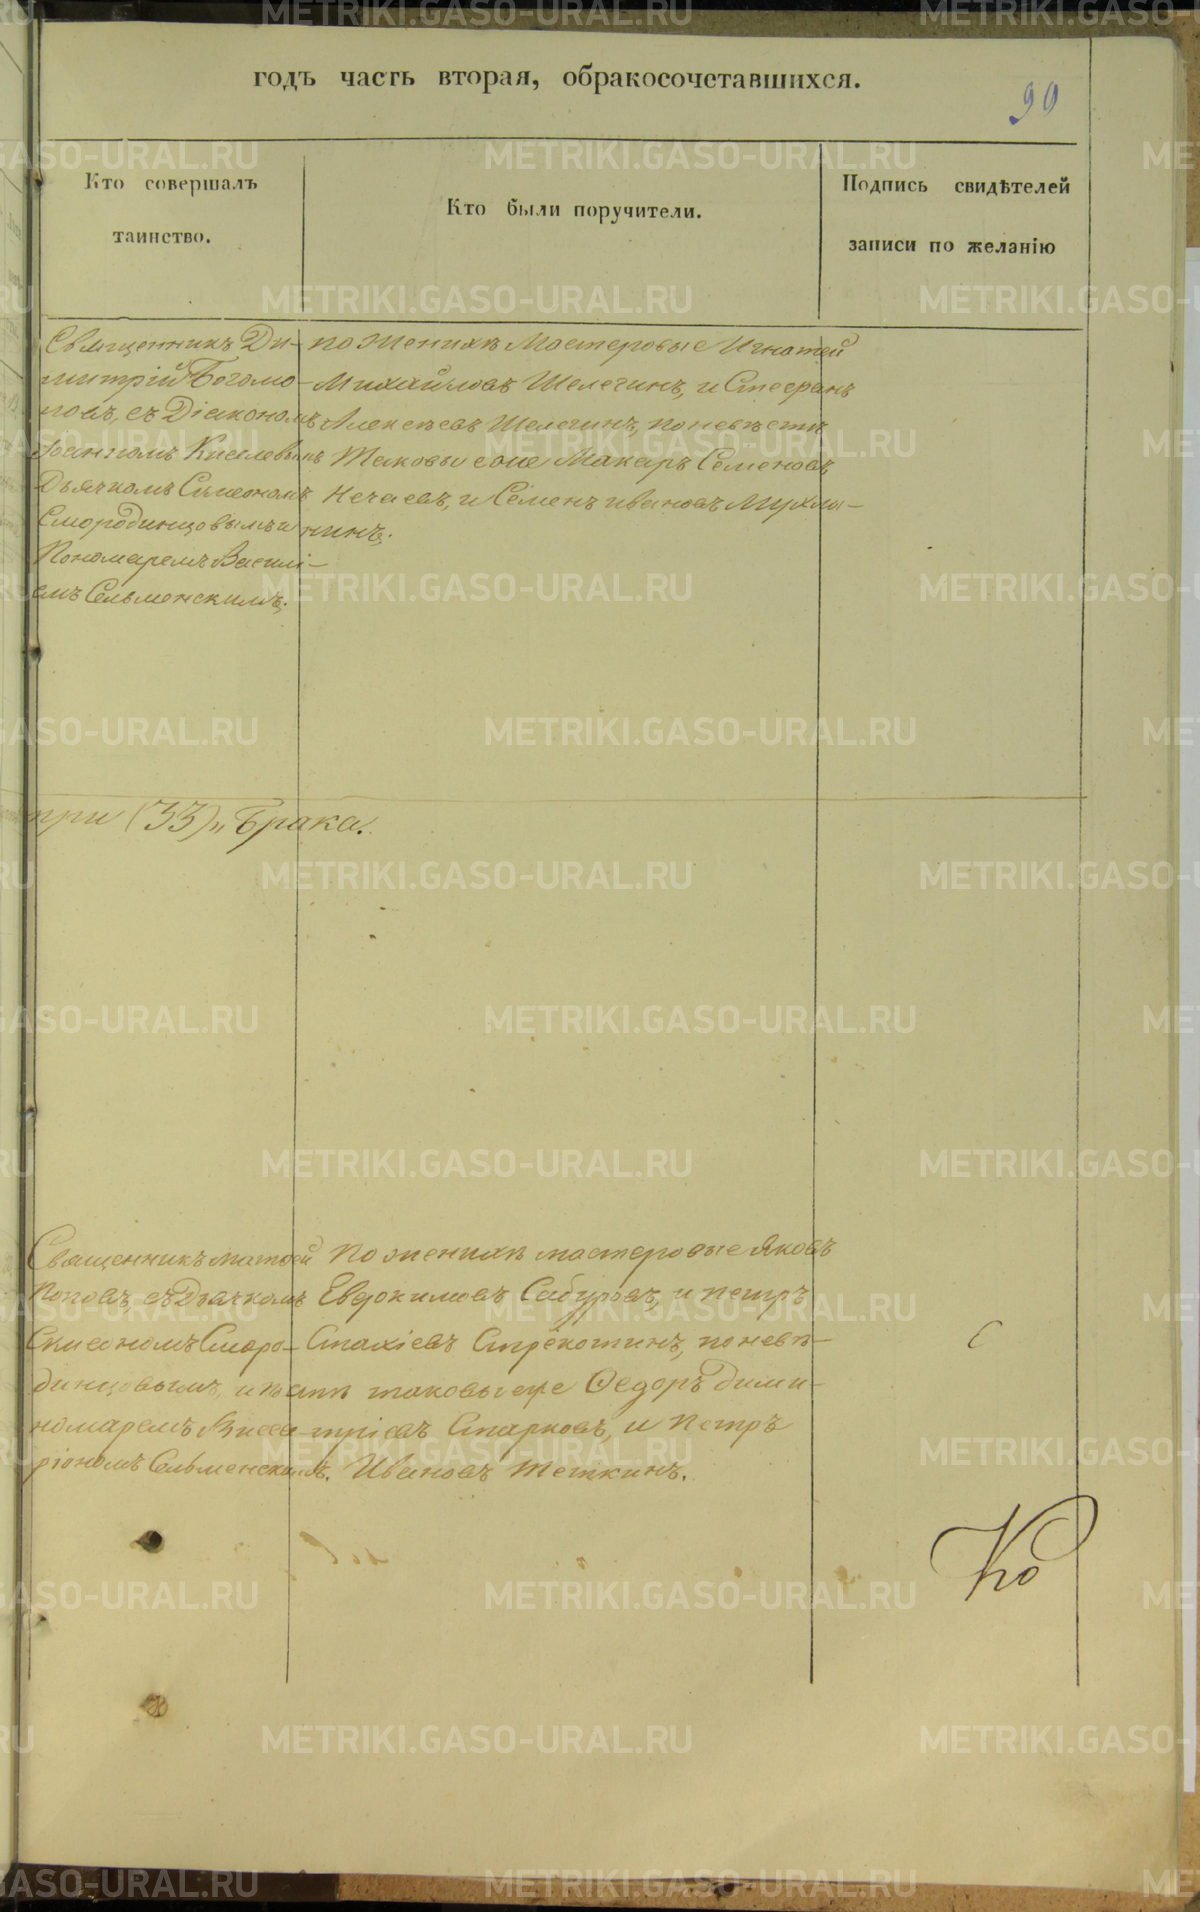 годъ часть вторая, обракосочетавшихся.
90
Кто совершалъ
таинство.
Кто были поручители.
Подпись свидѣтелей
записи по желанію
Священникъ Ди-
митрій Богомо-
ловъ, съ Діакономъ
Іоанномъ Киселевымъ
Дьячкомъ Симеономъ
Смородинцовымъ и
Пономаремъ Василі-
емъ Сельменскимъ;
по Женихѣ Мастеровые Игнатей
Михайловъ Шелегинъ, и Стефанъ
Алексѣевъ Шелегинъ, по невѣстѣ
Таковые еше Макаръ Семеновъ
Нечаевъ, и Семенъ Ивановъ
нинъ;
три (33)„ Брака.
Священникъ Матѳей
Поповъ, съ Дьячкомъ
Симеономъ Сморо-
динцовымъ, и По-
номаремъ Висса-
ріономъ Сельменскимъ.
По женихѣ мастеровые Яковъ
Евдокимовъ Сабуровъ, и Петръ
Стахіевъ Стрекотинъ, по невѣ-
стѣ таковые еже Ѳедоръ Дими-
тріевъ Старковъ, и Петръ
Ивановъ Теткинъ.
С
Ко
METRIKI.GASO-URAL.RU